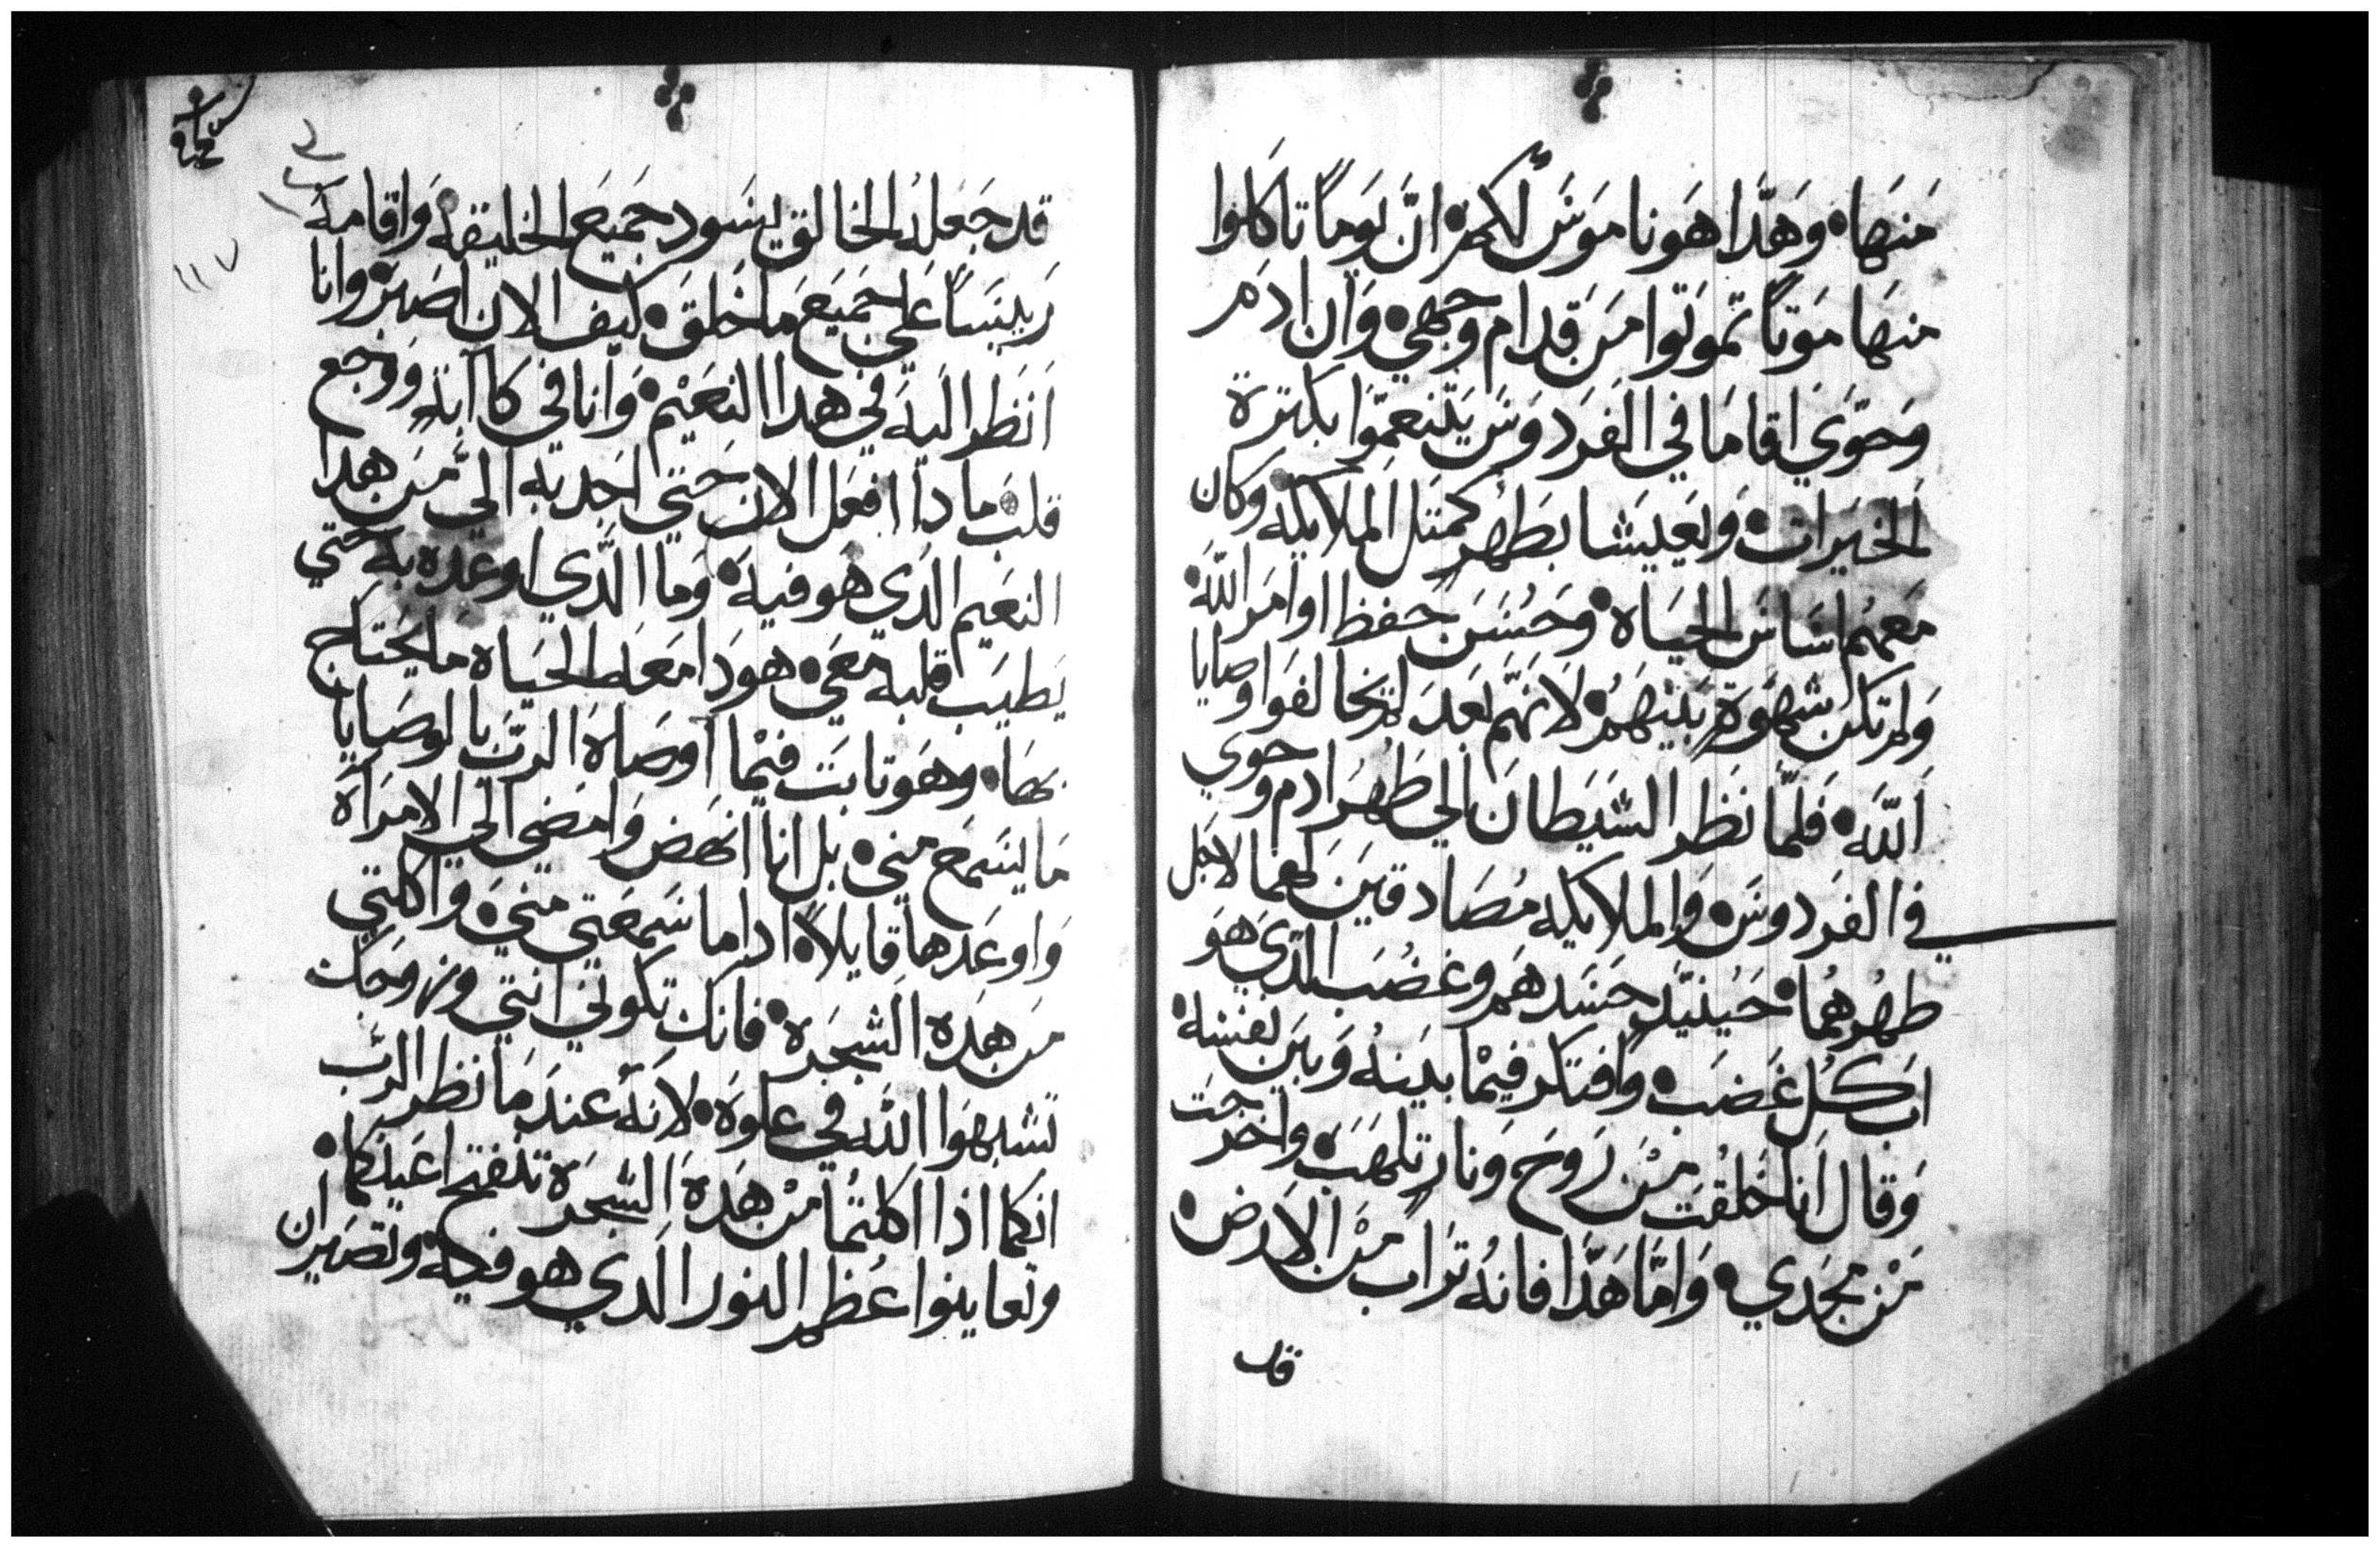 منها وهدا هو ناموس لكم ان يوماً تاكلوا
منها موتاً تموتوا من قدام وجهي وان ادم
وحوي اقاما في الفردوس يتنعموا بكترة
الخيرات ويعيشا بطهر كمتل الملايكه وكان
معهم اساس الحياه وحسن حفظ اوامر الله
ولم تكن شهوة بينهم لانهم بعد لم يخالفوا وصايا
الله فلما نظر الشيطان الي طهر ادم وحوي
في الفردوس والملايكه مصادقين لهما لاجل
طهرهما حينيد حسدهم وغضب الدي هو
اب كل غضب وافتكر فيما بينه وبين نفسه
وقال انا خلقت من روح ونار تلهب واخرجت
من مجدي واما هدا فانه تراب من الارض
قد
قد جعله الخالق يسود جميع الخليقه واقامه
رييساً علي جميع ما خلق كيف الان اصبر وانا
انظر اليه في هدا النعيم وانا في كاابة ووجع
قلب مادا افعل الان حتي اجدبه الي من هدا
النعيم الدي هو فيه وما الدي اوعده به حتي
يطيب قلبه معي هودا معه الحياه ما يحتاج
بها وهو تابت فيما اوصاه الرب بالوصايا
ما يسمع مني بل انا انهض وامضي الي الامراه
واوعدها قايلاً ادا ما سمعتي مني واكلتي
من هده الشجره فانك تكوني انتي وزوجك
تشبهوا الله في علوه لانه عند ما نظر الرب
انكما اذا اكلتما من هده الشجره تنفتح اعينكما
وتعاينوا عظم النور الدي هو فيه وتصيران
١١٧